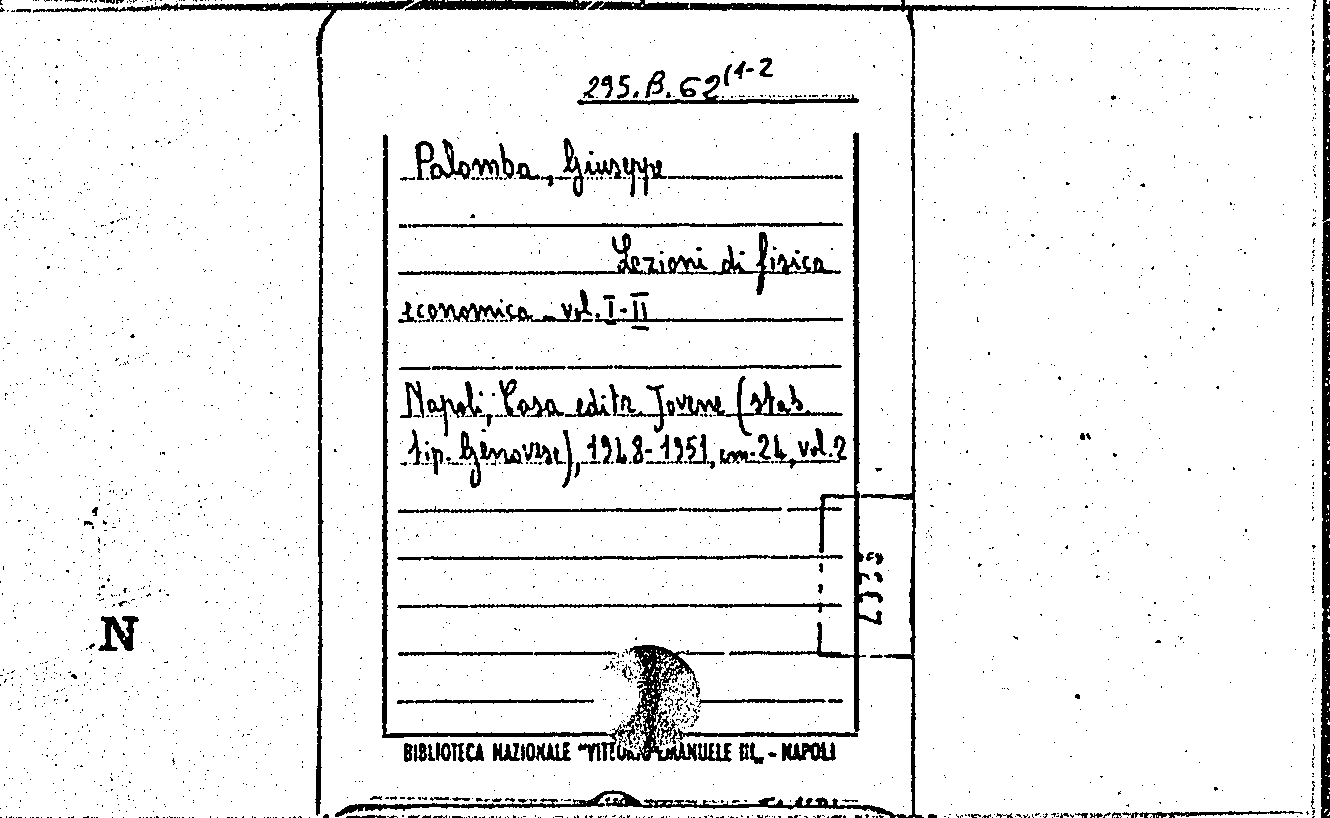 295.B.62(1-2
Palomba, Giuseppe
Lezioni di fisica
economica - vol. I-II
Napoli, Casa editr. Jovene (stab.
tip. Genovese), 1948-1951, cm. 24, vol. 2
N
BIBLIOTECA NAZIONALE "VITTORIO EMANUELE III„ - NAPOLI